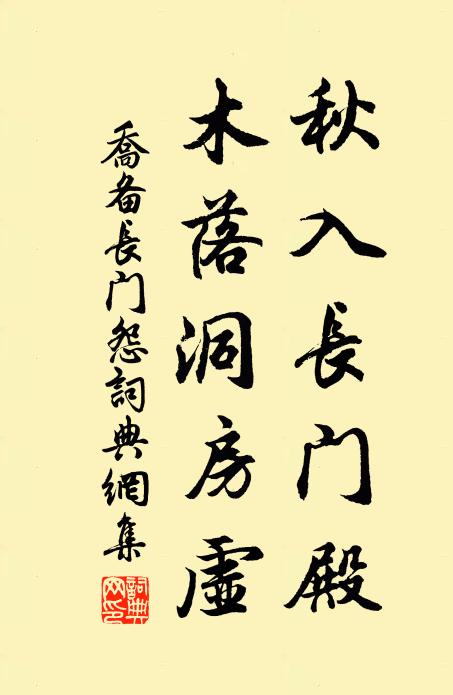 秋入長门殿
木落洞房虛
喬备長门怨詞典網集
詞典網印